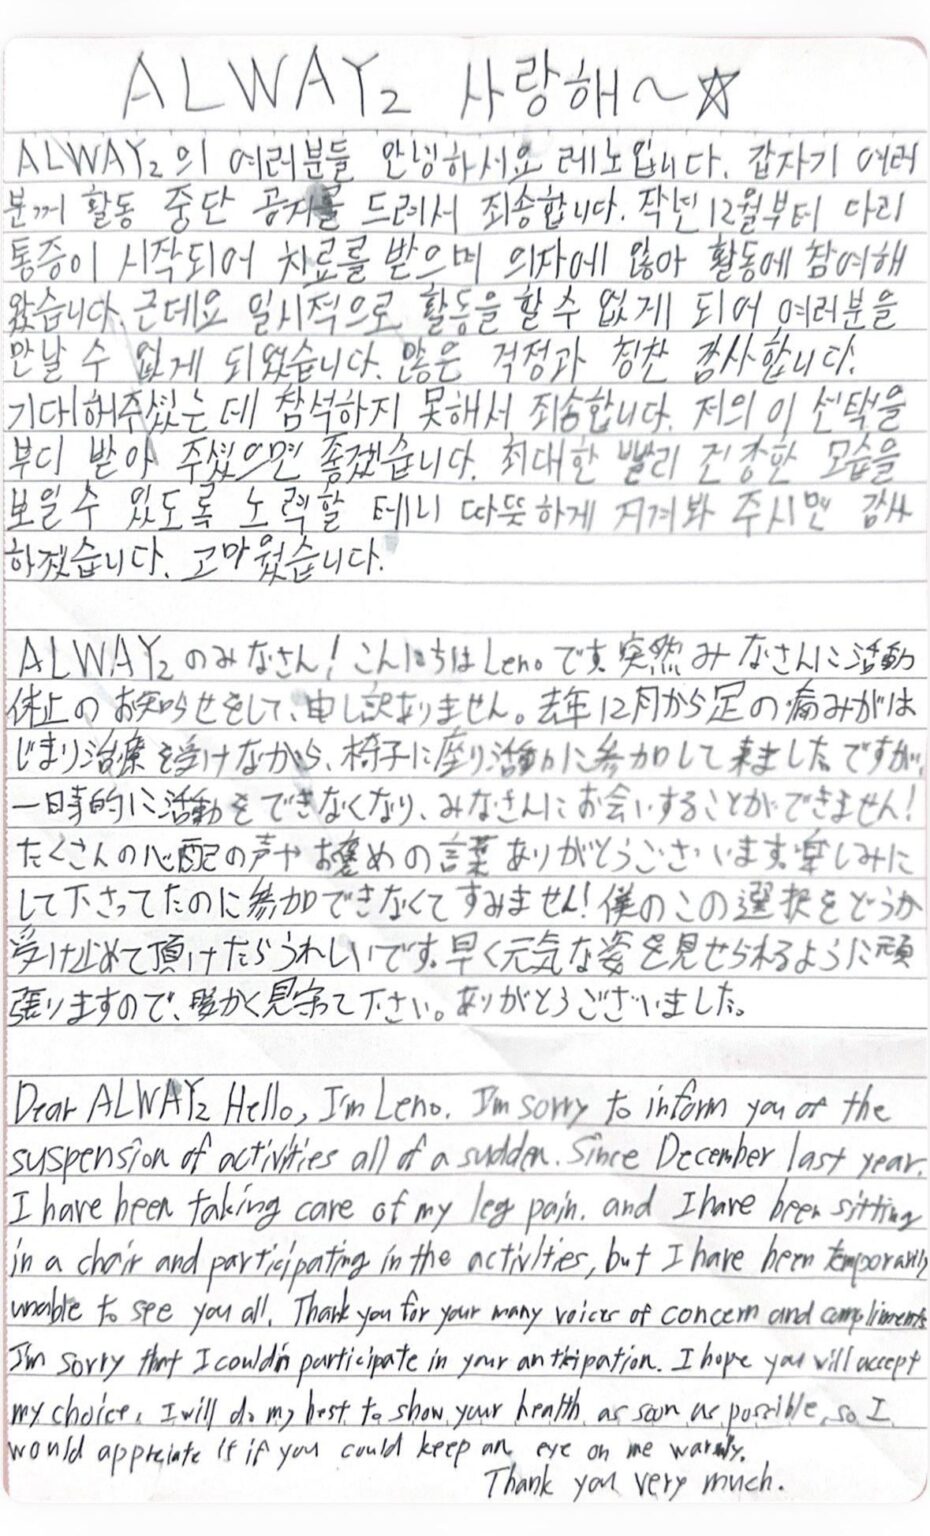 ALWAY2 사랑해~☆
ALWAY2의 여러분들 안녕하세요 레노입니다. 갑자기 여러
분께 활동 중단 공지를 드려서 죄송합니다. 작년 12월부터 다리
통증이 시작되어 치료를 받으며 의자에 앉아 활동에 참여해
왔습니다. 근데요 일시적으로 활동을 할 수 없게 되어 여러분을
만날 수 없게 되었습니다. 많은 걱정과 칭찬 감사합니다.
기대해주셨는데 참석하지 못해서 죄송합니다. 저의 이 선택을
부디 받아 주셨으면 좋겠습니다. 최대한 빨리 건강한 모습을
보일 수 있도록 노력할 테니 따뜻하게 지켜봐 주시면 감사
하겠습니다. 고마웠습니다.
ALWAY2 のみなさん！こんにちは Leno です 突然みなさんに活動
休止のお知らせをして、申し訳ありません。去年12月から足の痛みがは
じまり治療を受けながら、椅子に座り活動に参加して来ましたですが、
一時的に活動をできなくなり、みなさんにお会いすることができません！
たくさんの心配の声やお褒めの言葉ありがとうございます楽しみに
して下さってたのに参加できなくてすみません！僕のこの選択をどうか
受け止めて頂けたらうれしいです。早く元気な姿を見せられるように頑
張りますので、暖かく見守て下さい。ありがとうございました。
Dear ALWAY2 Hello, I'm Leno. I'm sorry to inform you of the
suspension of activities all of a sudden. Since December last year,
I have been taking care of my leg pain. and I have been sitting
in a chair and participating in the activities, but I have been temporarily
unable to see you all. Thank you for your many voices of concern and compliments
I'm sorry that I couldn participate in your anticipation. I hope you will accept
my choice. I will do my best to show your health as soon as possible, so I
would appreciate it if you could keep an eye on me warmly.
Thank you very much.